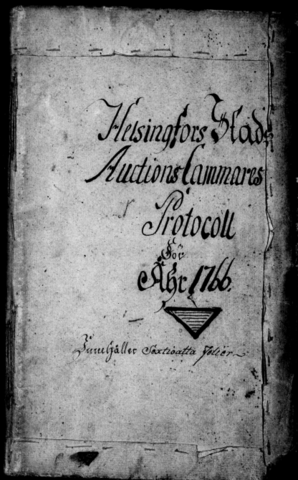 Helsingfors Stads
Auctions Cammares
Protocoll
För
Åhr 1766.
Innehåller Sextioåtta folier